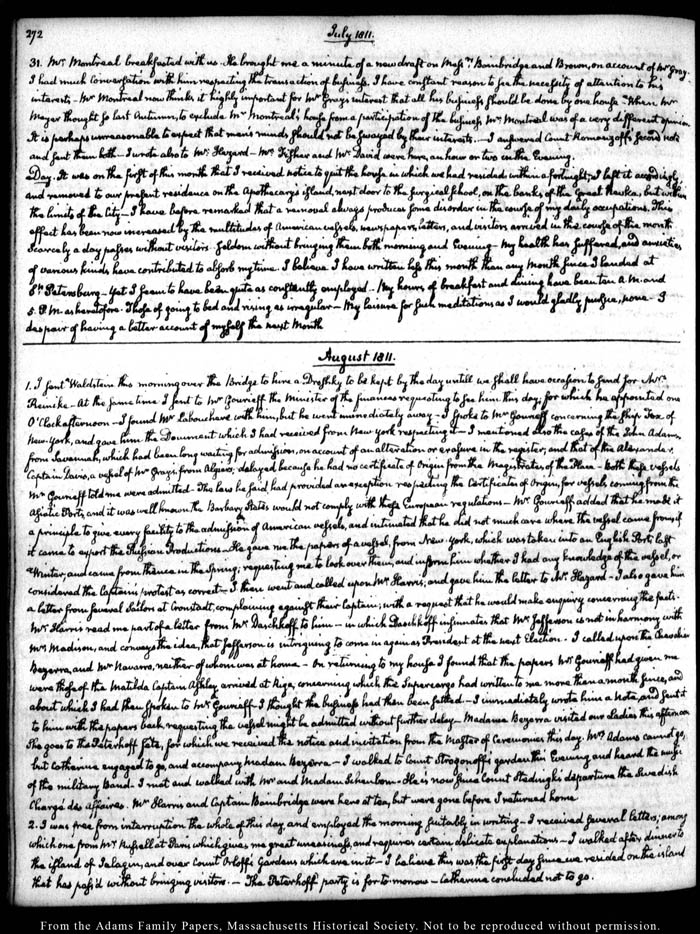 272
July 1811.
31. Mr Montreal breakfasted with us. He brought me a minute of a new draft on Messrs Bainbridge and Brown, on account of Mr Gray.
I had much Conversation with him respecting the transaction of business. I have constant reason to see the necessity of attention to his
interests. Mr Montreal now thinks it highly important for Mr Gray's interest that all his business should be done by one house. When Mr
Meyer thought so last Autumn, to exclude Mr Montreal's house from a participation of the business, Mr Montreal was of a very different opinion.
It is perhaps unreasonable to expect that men's minds should not be swayed by their interests. — I answered Count Romanzoff's second note
and sent them both — I wrote also to Mr Hazard — Mr Fisher and Mr David were here, an hour or two in the Evening.
Day. It was on the first of this month that I received notice to quit the house in which we had resided within a fortnight, I left it accordingly
and removed to our present residence on the Apothecary's island, next door to the Surgical School, on the banks of the Great Nawka, but within
the limits of the City — I have before remarked that a removal always produces some disorder in the course of my daily occupations. This
effect has been now increased by the multitudes of American vessels, newspapers, letters, and visitors arrived in the course of the month
Scarcely a day passes without visitors. Seldom without bringing them both morning and Evening — My health has suffered, and anxieties
of various kinds have contributed to absorb my time. I believe I have written less this month than any Month since I landed at
St: Petersburg — Yet I seem to have been quite as constantly employed — My hours of breakfast and dining have been ten A.M. and
5. P.M. as heretofore. Those of going to bed and rising as irregular — My leisure for such meditations as I would gladly pursue, none — I
despair of having a better account of myself the next Month
August 1811.
1. I sent Waldstein this morning over the Bridge to hire a Droshky to be kept by the day untill we shall have occasion to send for Mr
Reinike — At the same time I sent to Mr Gourieff the Minister of the finances requesting to see him this day, for which he appointed one
O'Clock afternoon — I found Mr Labouchere with him, but he went immediately away — I spoke to Mr Gourieff concerning the Ship Fox of
New-York, and gave him the Document which I had received from New York respecting it — I mentioned also the cases of the John Adams,
from Savannah, which had been long waiting for admission, on account of an alteration or erasure in the register, and that of the Alexander,
Captain Davis, a vessel of Mr Gray's from Algiers, delayed because he had no certificate of Origin from the Magistrates of the Place — Both these vessels
Mr Gourieff told me were admitted — The law he said, had provided an exception respecting the Certificates of Origin, for vessels coming from the
Asiatic Ports, and it was well known the Barbary States would not comply with these European regulations — Mr Gourieff added that he made it
a principle to give every facility to the admission of American vessels, and intimated that he did not much care where the vessel came from if
it came to export the Russian Productions — He gave me the papers of a vessel, from New York, which was taken into an English Port, last
Winter, and came from thence in the Spring, requesting me to look over them, and inform him whether I had any knowledge of the vessel, or
considered the Captain's protest as correct — I then went and called upon Mr Harris, and gave him the letter to Mr Hazard — I also gave him
a letter from several Sailors at Cronstadt, complaining against their Captain, with a request that he would make enquiry concerning the facts.
Mr Harris read me part of a letter from Mr Daschkoff to him — in which Daschkoff intimates that Mr Jefferson is not in harmony with
Mr Madison, and conveys the idea, that Jefferson is intriguing to come in again as President at the next Election. I called upon the Chevalier
Bezerra, and Mr Navarro, neither of whom was at home. — On returning to my house I found that the papers Mr Gourieff had given me
were those of the Matilda Captain Ashley arrived at Riga, concerning which the Supercargo had written to me more than a month since, and
about which I had then spoken to Mr Gourieff. I thought the business had then been settled — I immediately wrote him a Note, and sent it
to him with the papers back requesting the vessel might be admitted without further delay — Madame Bezerra visited our Ladies this afternoon
She goes to the Peterhoff fete, for which we received the notice and invitation from the Master of Ceremonies this day. Mrs Adams cannot go,
but Catherine engaged to go, and accompany Madam Bezerra — I walked to Count Strogonoff's garden this Evening and heard the music
of the military Band. I met and walked with Mr and Madam Schenbom — He is now since Count Stedingk's departure the Swedish
Chargé des affaires. Mr Harris and Captain Bainbridge were here at tea, but were gone before I returned home
2. I was free from interruption the whole of this day, and employed the morning suitably in writing — I received several letters; among
which one from Mr Russell at Paris which gives me great uneasiness, and requires certain delicate explanations — I walked after dinner to
the island of Jelagin, and over Count Orloff's Gardens which are in it — I believe this was the first day since we resided on the island
that has pass'd without bringing visitors. — The Peterhoff party is for to-morrow — Catherine concluded not to go.
From the Adams Family Papers, Massachusetts Historical Society. Not to be reproduced without permission.